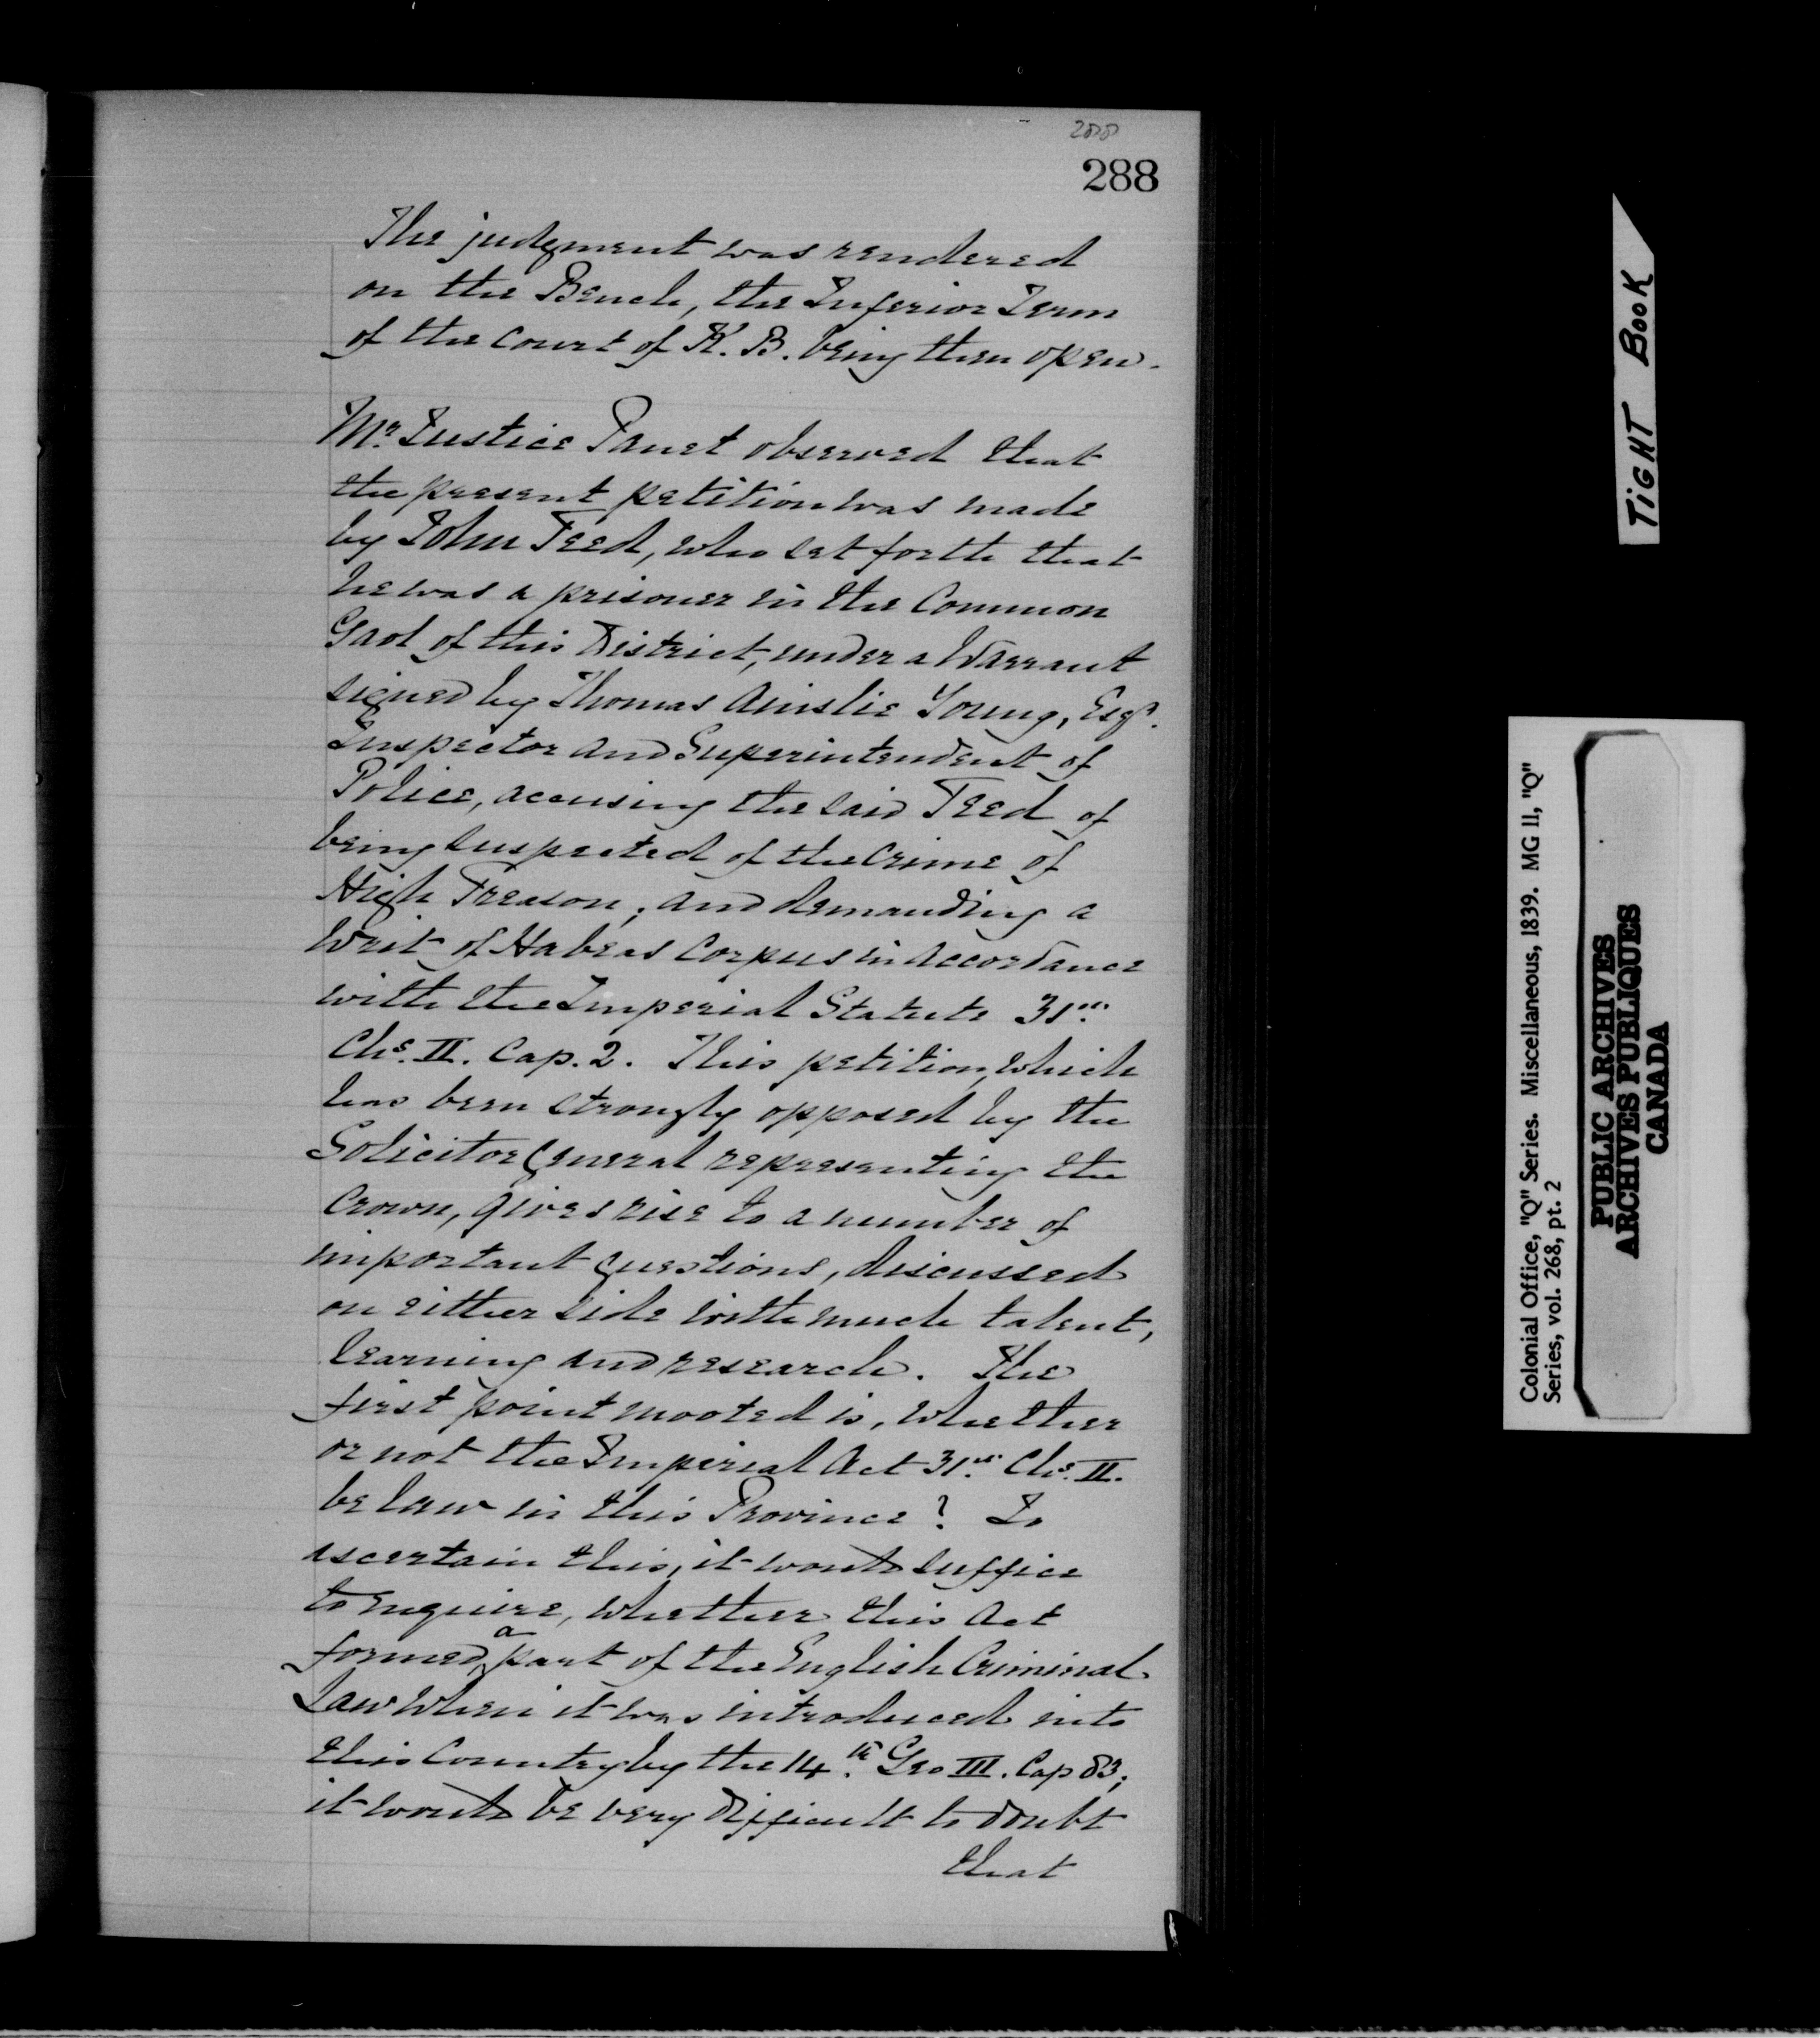 288
288
The judgment was rendered
on the Bench, the Inferior Term
of the Court of K. B. being then open.
Mr. Justice Panet observed that
the present petition was made
by John Teed, who set forth that
he was a prisoner in the Common
Gaol of this District, under a Warrant
signed by Thomas Ainslie Young, Esqr.
Inspector and Superintendent of
Police, accusing the said Teed of
being suspected of the crime of
High Treason; and demanding a
Writ of Habeas Corpus in accordance
with the Imperial Statute 31st.
Chs. II. Cap. 2. This petition, which
has been strongly opposed by the
Solicitor General representing the
Crown, gives rise to a number of
important questions, discussed
on either side with much talent,
learning and research. The
first point mooted is, whether
or not the Imperial Act 31st. Chs. II.
be law in this Province? To
ascertain this, it would suffice
to enquire, whether this Act
formed a part of the English Criminal
Law when it was introduced into
this Country by the 14th. Geo III. Cap 83;
it would be very difficult to doubt
that
TIGHT BOOK
Colonial Office, "Q" Series. Miscellaneous, 1839. MG 11, "Q"
Series, vol. 268, pt. 2
PUBLIC ARCHIVES
ARCHIVES PUBLIQUES
CANADA